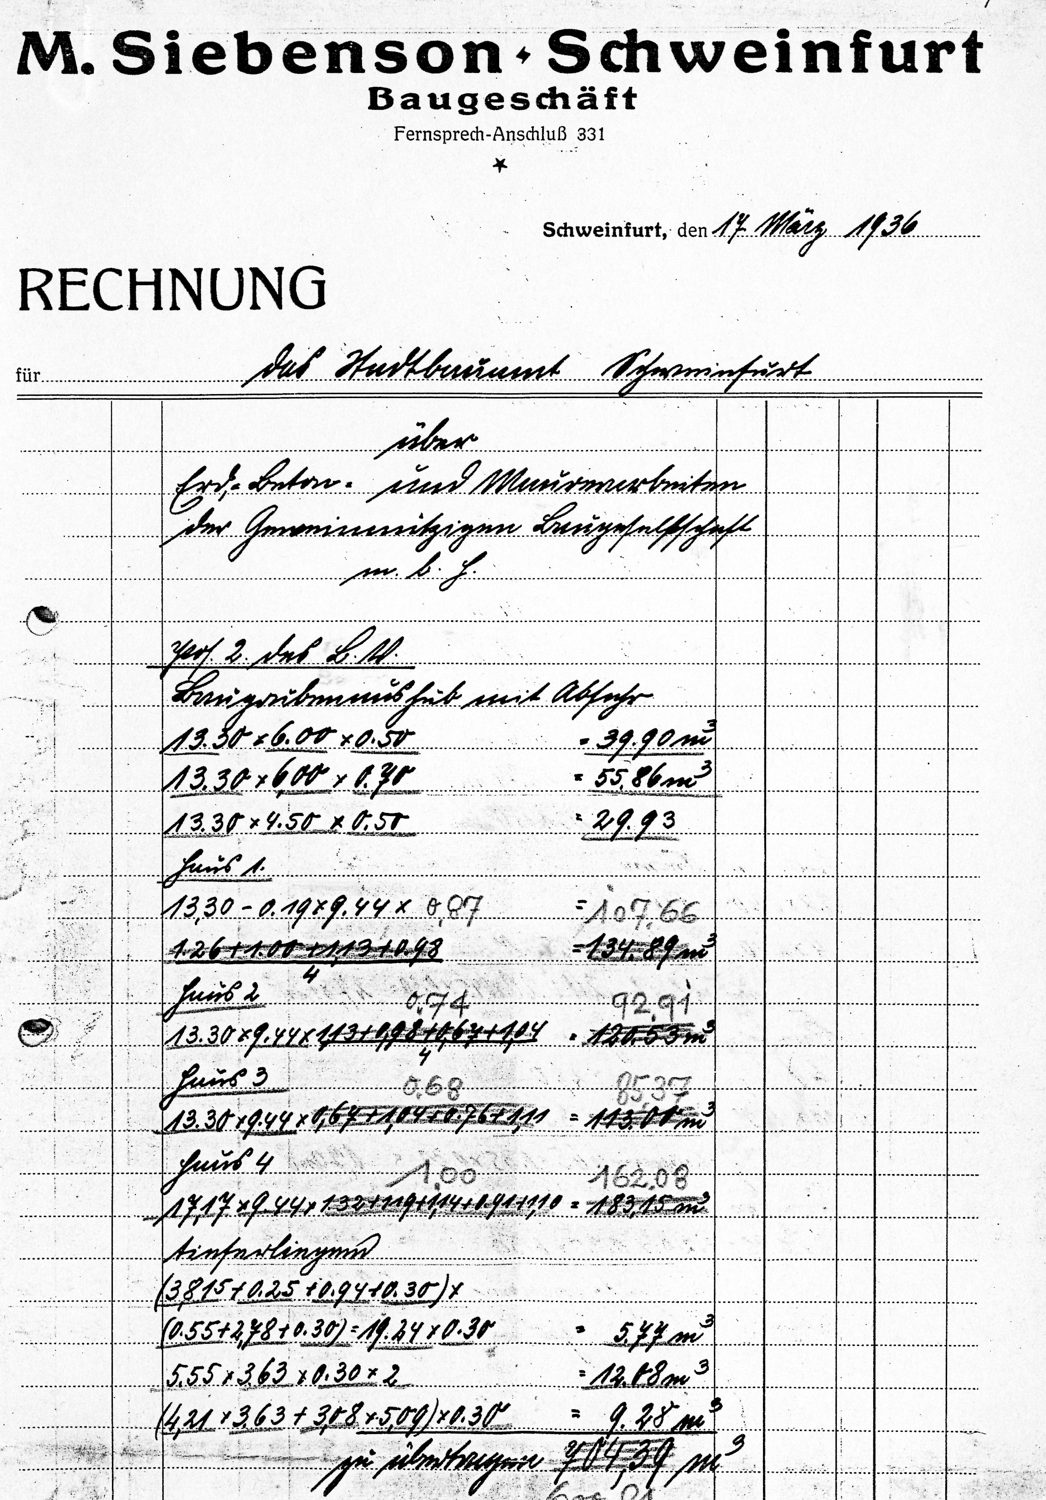 M. Siebenson · Schweinfurt
Baugeschäft
Fernsprech-Anschluß 331
Schweinfurt, den 17. März 1936
RECHNUNG
für das Stadtbauamt Schweinfurt
über
Erd-, Beton- und Maurerarbeiten
der Gemeinnützigen Baugesellschaft
m. b. H.
Pos. 2. des L.V.
Baugrubenaushub mit Abfuhr
13.30 × 6.00 × 0.50 = 39.90 m³
13.30 × 6,00 × 0.70 = 55,86 m³
13.30 × 4.50 × 0.50 = 29.93
Haus 1.
13,30 - 0.19 × 9.44 × 0,87 = 107,66
1.26 + 1.00 + 1,13 + 0.98 = 134.89 m³
4
Haus 2 0,74 92,91
13.30 × 9.44 × 1,13 + 0,98 + 0,67 + 1,04 = 120.53 m³
4
Haus 3 0,68 85,37
13.30 × 9.44 × 0,67 + 1,04 + 0.76 + 1,11 = 113.00 m³
Haus 4 1,00 162,08
17,17 × 9.44 × 1.32 + 1.19 + 1,14 + 0.91 + 1,10 = 183,15 m³
tieferliegend
(3,815 + 0.25 + 0.94 + 0.30) ×
(0.55 + 2,78 + 0.30) = 19.24 × 0.30 = 5,77 m³
5.55 × 3.63 × 0.30 × 2 = 12.08 m³
(4,21 × 3.63 + 3,08 × 5,09) × 0.30 = 9.28 m³
zu übertragen 704,39 m³